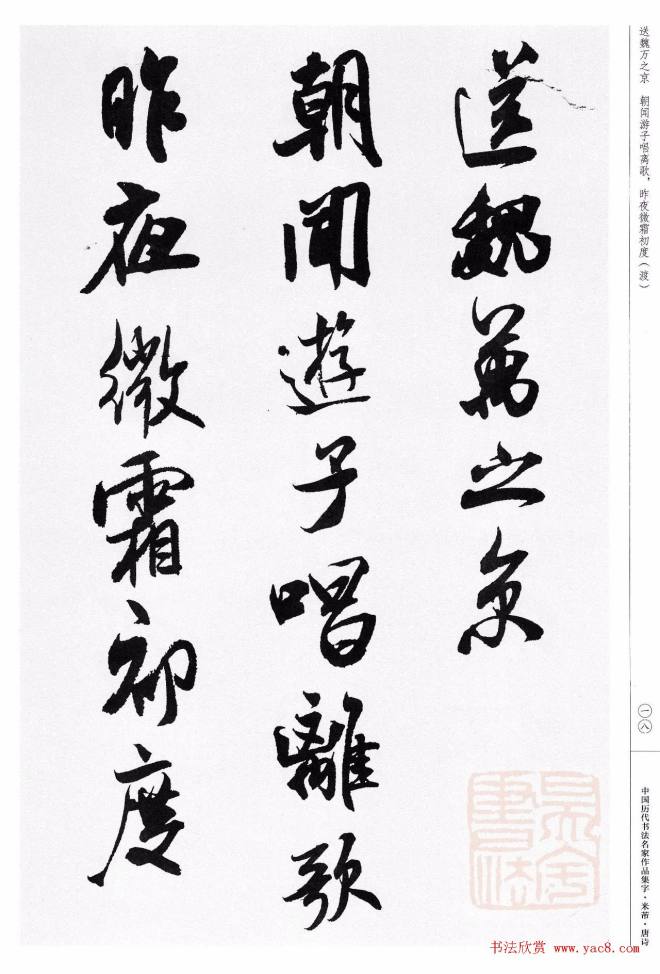 送魏萬之京
朝聞遊子唱離歌
昨夜微霜初度
送魏万之京　朝闻游子唱离歌，昨夜微霜初度（渡）
一八
中国历代书法名家作品集字·米芾·唐诗
书法欣赏 www.yac8.com